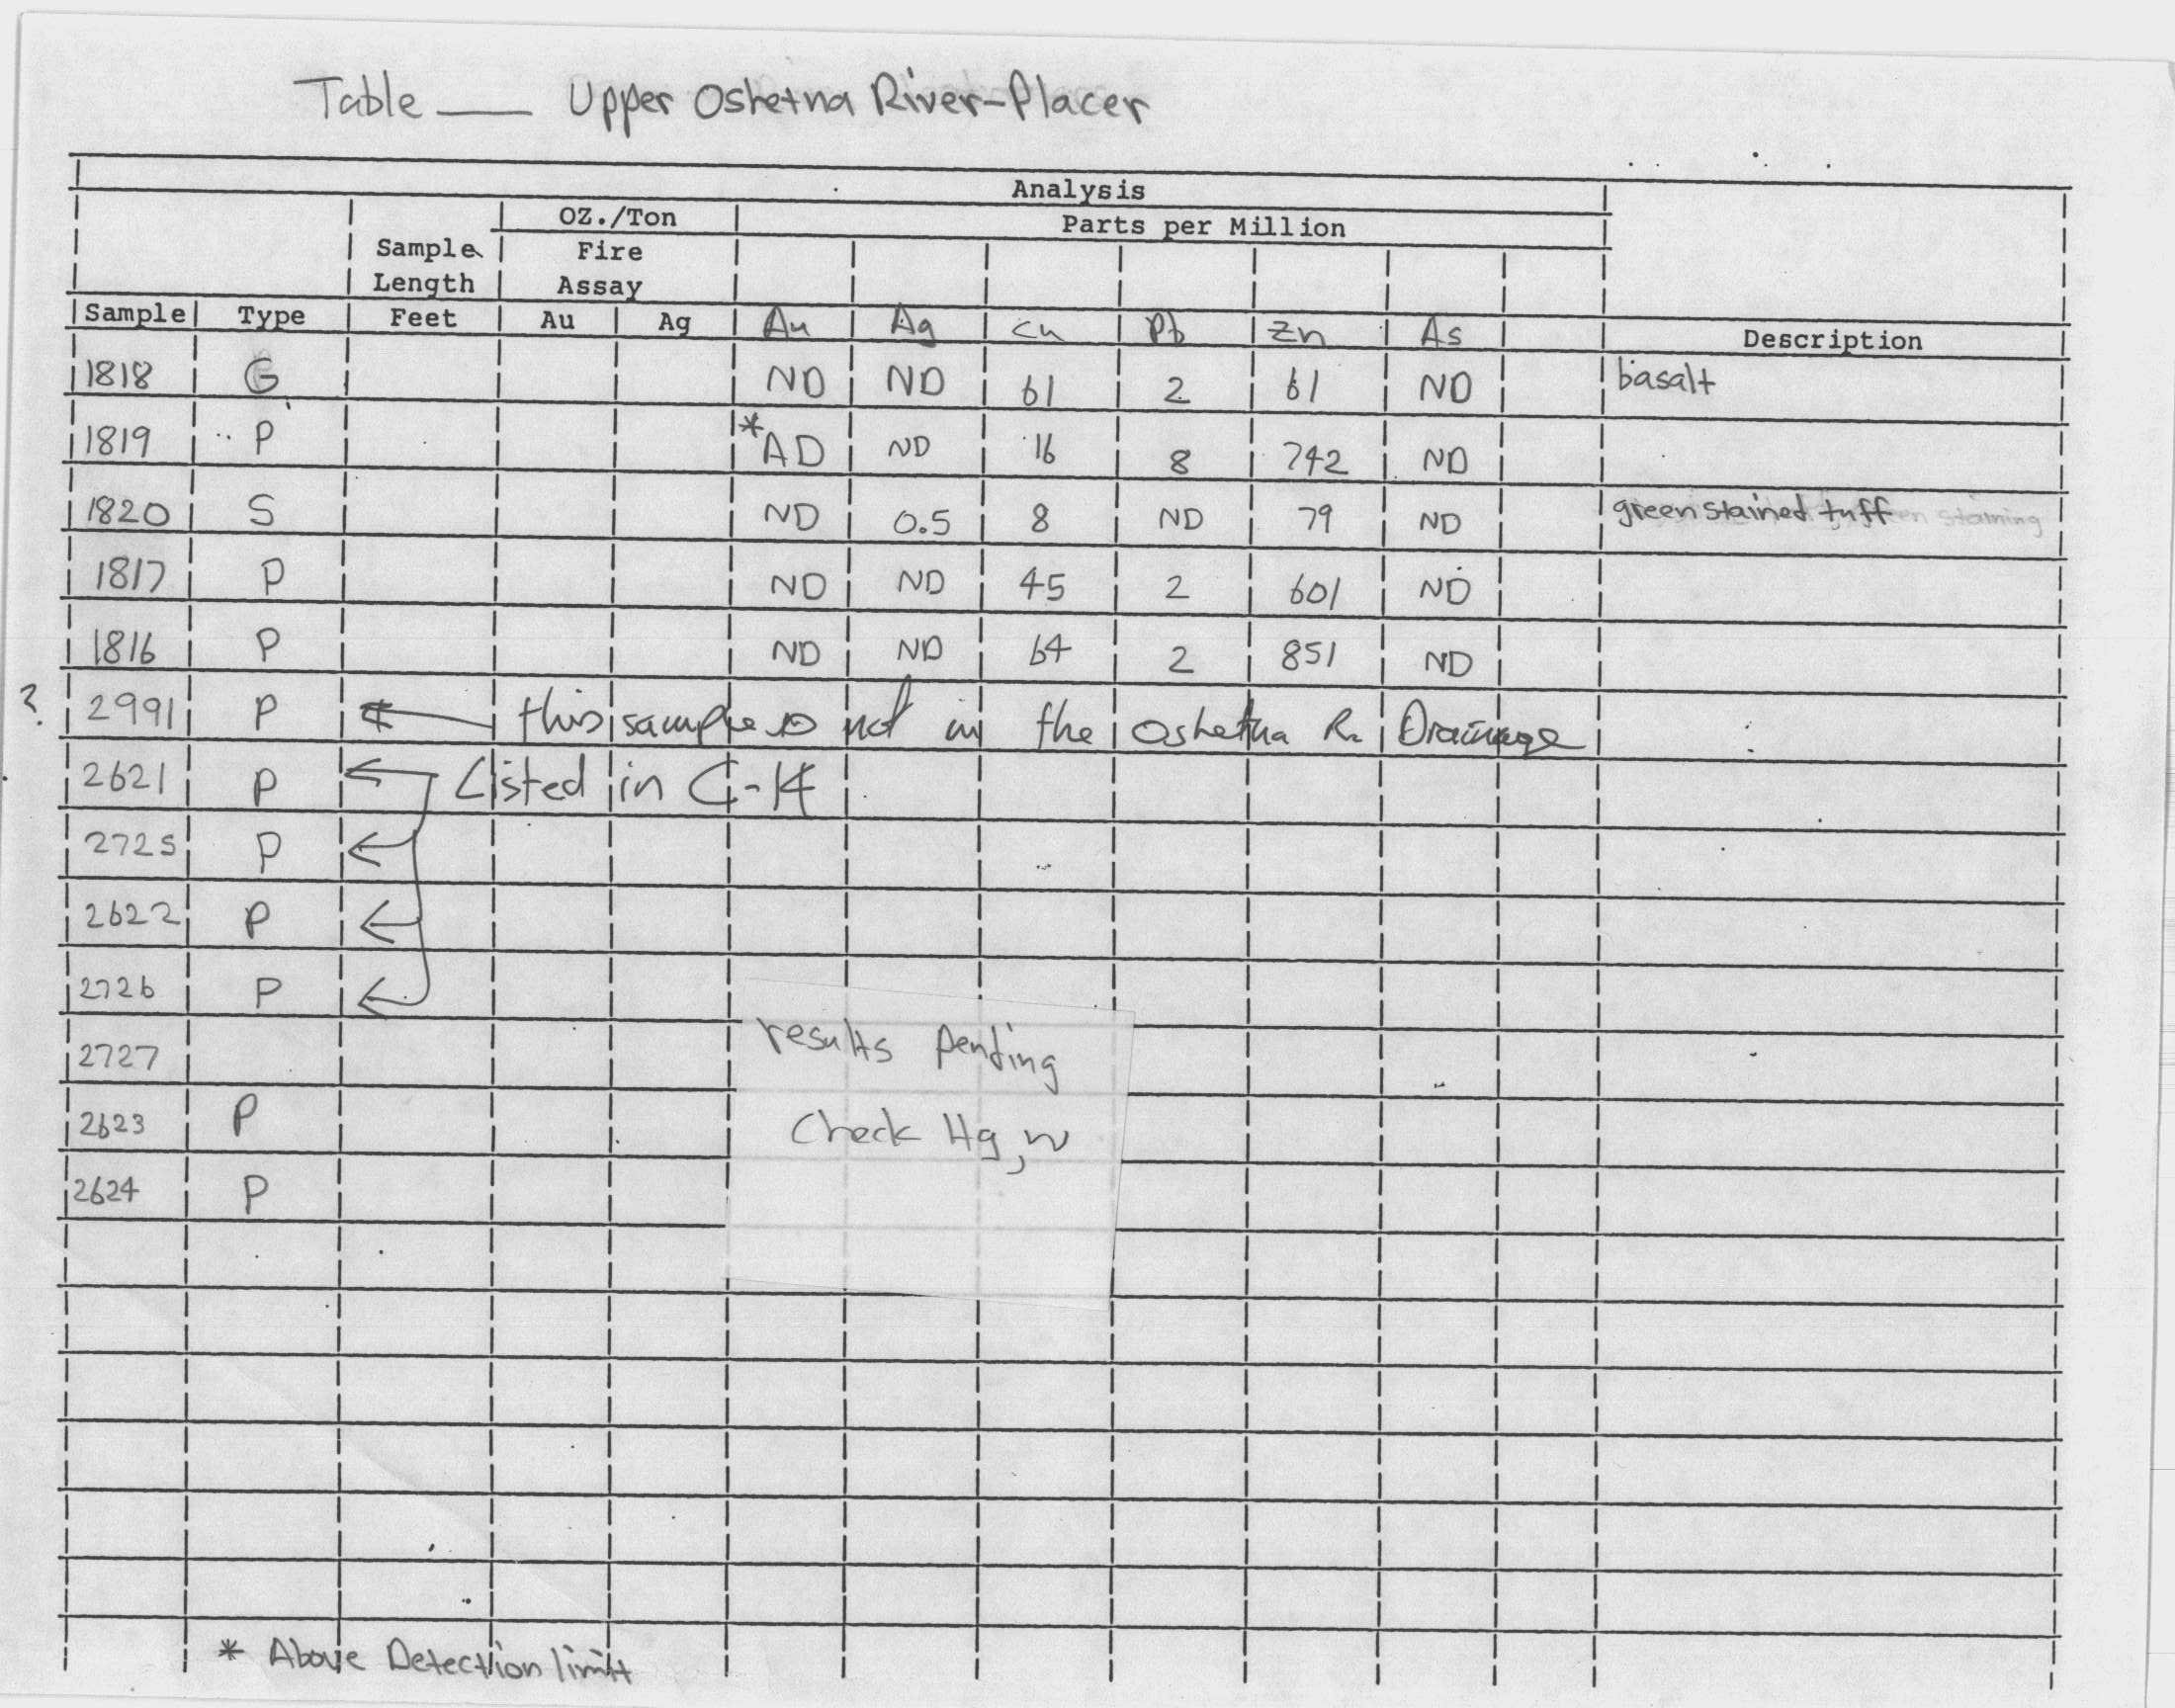 Table ___ Upper Oshetna River-Placer
Analysis
OZ./Ton Parts per Million
Sample Fire
Length Assay
Sample Type Feet Au Ag Au Ag Cu Pb Zn As Description
1818 G ND ND 61 2 61 ND basalt
1819 P *AD ND 16 8 742 ND
1820 S ND 0.5 8 ND 79 ND green stained tuff
1817 P ND ND 45 2 601 ND
1816 P ND ND 64 2 851 ND
? 2991 P this sample is not in the Oshetna R. Drainage
2621 P Listed in C-14
2725 P
2622 P
2726 P
results pending
2727
Check Hg, W
2623 P
2624 P
* Above Detection limit